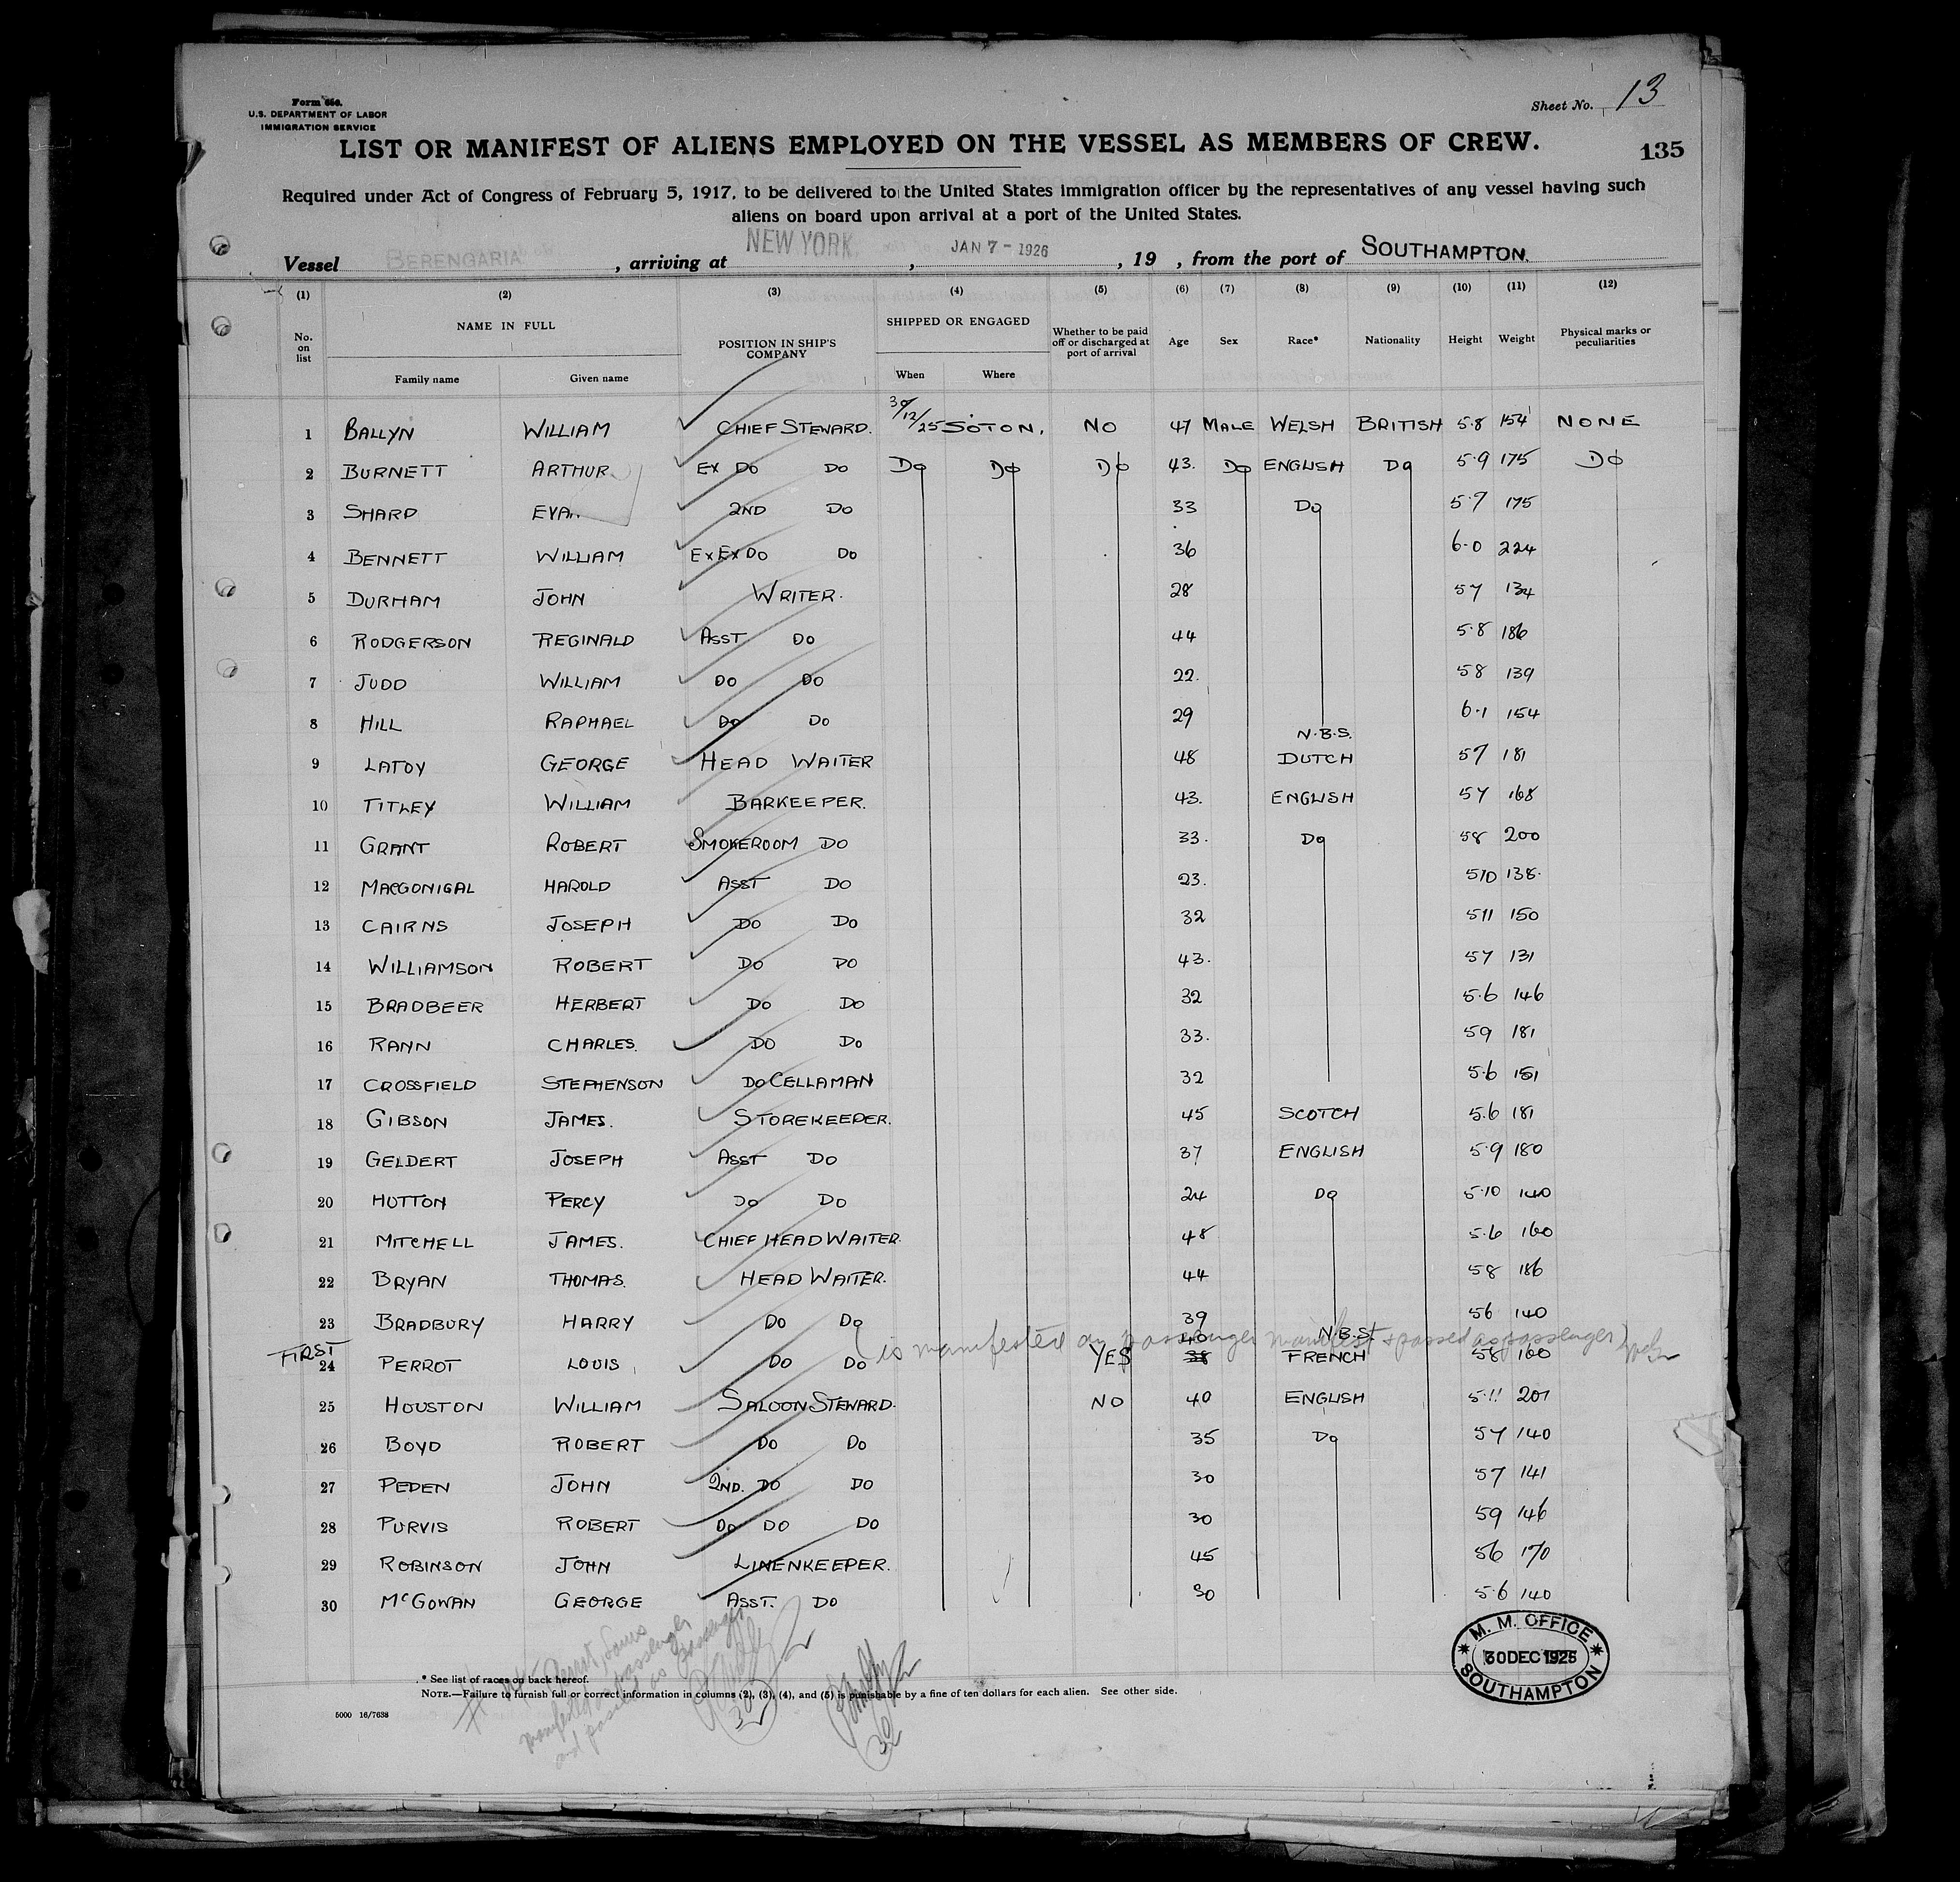 Form 656.
U.S. DEPARTMENT OF LABOR
IMMIGRATION SERVICE
Sheet No. 13
LIST OR MANIFEST OF ALIENS EMPLOYED ON THE VESSEL AS MEMBERS OF CREW.
135
Required under Act of Congress of February 5, 1917, to be delivered to the United States immigration officer by the representatives of any vessel having such
aliens on board upon arrival at a port of the United States.
Vessel BERENGARIA, arriving at NEW YORK, JAN 7 - 1926, 19 , from the port of SOUTHAMPTON.
(1) (2) (3) (4) (5) (6) (7) (8) (9) (10) (11) (12)
No. on list NAME IN FULL POSITION IN SHIP'S COMPANY SHIPPED OR ENGAGED Whether to be paid off or discharged at port of arrival Age Sex Race* Nationality Height Weight Physical marks or peculiarities
Family name Given name When Where
1 BALLYN WILLIAM CHIEF STEWARD. 30/12/25 SOTON. NO 47 MALE WELSH BRITISH 5.8 154 NONE
2 BURNETT ARTHUR EX DO DO DO DO DO 43. DO ENGLISH DO 5.9 175 DO
3 SHARP EVA 2ND DO 33 DO 5.7 175
4 BENNETT WILLIAM EX EX DO DO 36 6.0 224
5 DURHAM JOHN WRITER. 28 57 134
6 RODGERSON REGINALD ASST DO 44 5.8 186
7 JUDD WILLIAM DO DO 22. 58 139
8 HILL RAPHAEL DO DO 29 6.1 154
N.B.S.
9 LATOY GEORGE HEAD WAITER 48 DUTCH 57 181
10 TITLEY WILLIAM BARKEEPER. 43. ENGLISH 57 168
11 GRANT ROBERT SMOKEROOM DO 33. DO 58 200
12 MACGONIGAL HAROLD ASST DO 23. 510 138.
13 CAIRNS JOSEPH DO DO 32 511 150
14 WILLIAMSON ROBERT DO DO 43. 57 131
15 BRADBEER HERBERT DO DO 32 5.6 146
16 RANN CHARLES. DO DO 33. 59 181
17 CROSSFIELD STEPHENSON DO CELLAMAN 32 5.6 151
18 GIBSON JAMES. STOREKEEPER. 45 SCOTCH 5.6 181
19 GELDERT JOSEPH ASST DO 37 ENGLISH 5.9 180
20 HUTTON PERCY DO DO 24 DO 5.10 140
21 MITCHELL JAMES. CHIEF HEAD WAITER. 48 5.6 160
22 BRYAN THOMAS. HEAD WAITER. 44 58 186
23 BRADBURY HARRY DO DO 39 56 140
(is manifested on passenger manifest & passed as passenger)
40 N.B.S.
FIRST
24 PERROT LOUIS DO DO YES 38 FRENCH 58 160
25 HOUSTON WILLIAM SALOON STEWARD. NO 40 ENGLISH 5.11 201
26 BOYD ROBERT DO DO 35 DO 57 140
27 PEDEN JOHN 2ND. DO DO 30 57 141
28 PURVIS ROBERT DO DO DO 30 59 146
29 ROBINSON JOHN LINENKEEPER. 45 56 170
30 McGOWAN GEORGE ASST. DO 30 5.6 140
Perrot, Louis
manifested as passenger
and passed as passenger
M. M. OFFICE
30 DEC 1925
SOUTHAMPTON
* See list of races on back hereof.
NOTE.—Failure to furnish full or correct information in columns (2), (3), (4), and (5) is punishable by a fine of ten dollars for each alien. See other side.
5000 16/7638